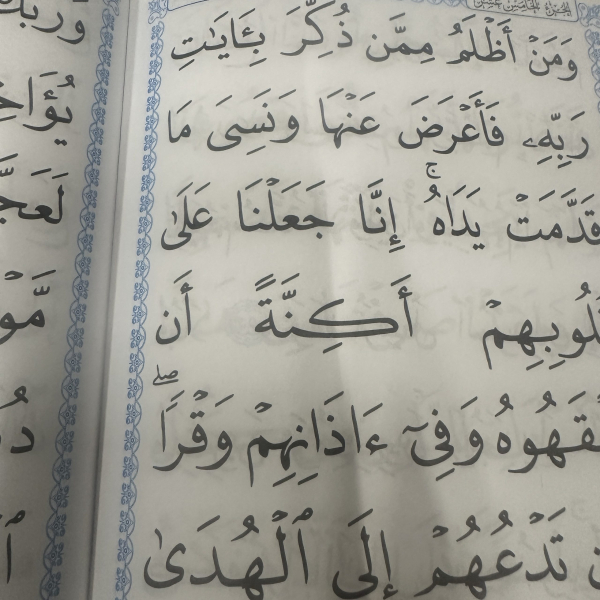 الجزء الخامس عشر
وَمَنْ أَظْلَمُ مِمَّن ذُكِّرَ بِـَٔايَـٰتِ
رَبِّهِۦ فَأَعْرَضَ عَنْهَا وَنَسِىَ مَا
قَدَّمَتْ يَدَاهُ ۚ إِنَّا جَعَلْنَا عَلَىٰ
قُلُوبِهِمْ أَكِنَّةً أَن
يَفْقَهُوهُ وَفِىٓ ءَاذَانِهِمْ وَقْرًا ۖ
تَدْعُهُمْ إِلَى ٱلْهُدَىٰ